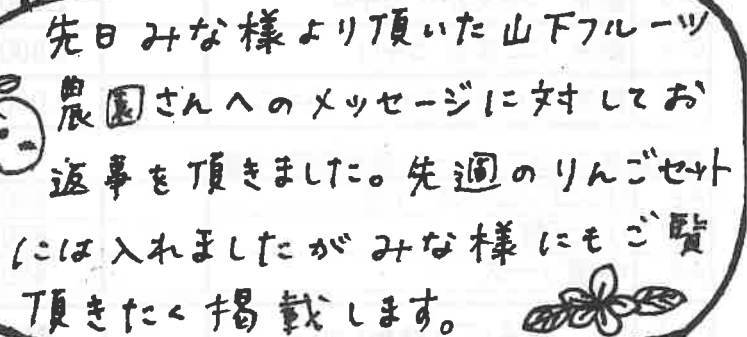 先日みな様より頂いた山下フルーツ
農園さんへのメッセージに対してお
返事を頂きました。先週のりんごセット
には入れましたがみな様にもご覧
頂きたく掲載します。